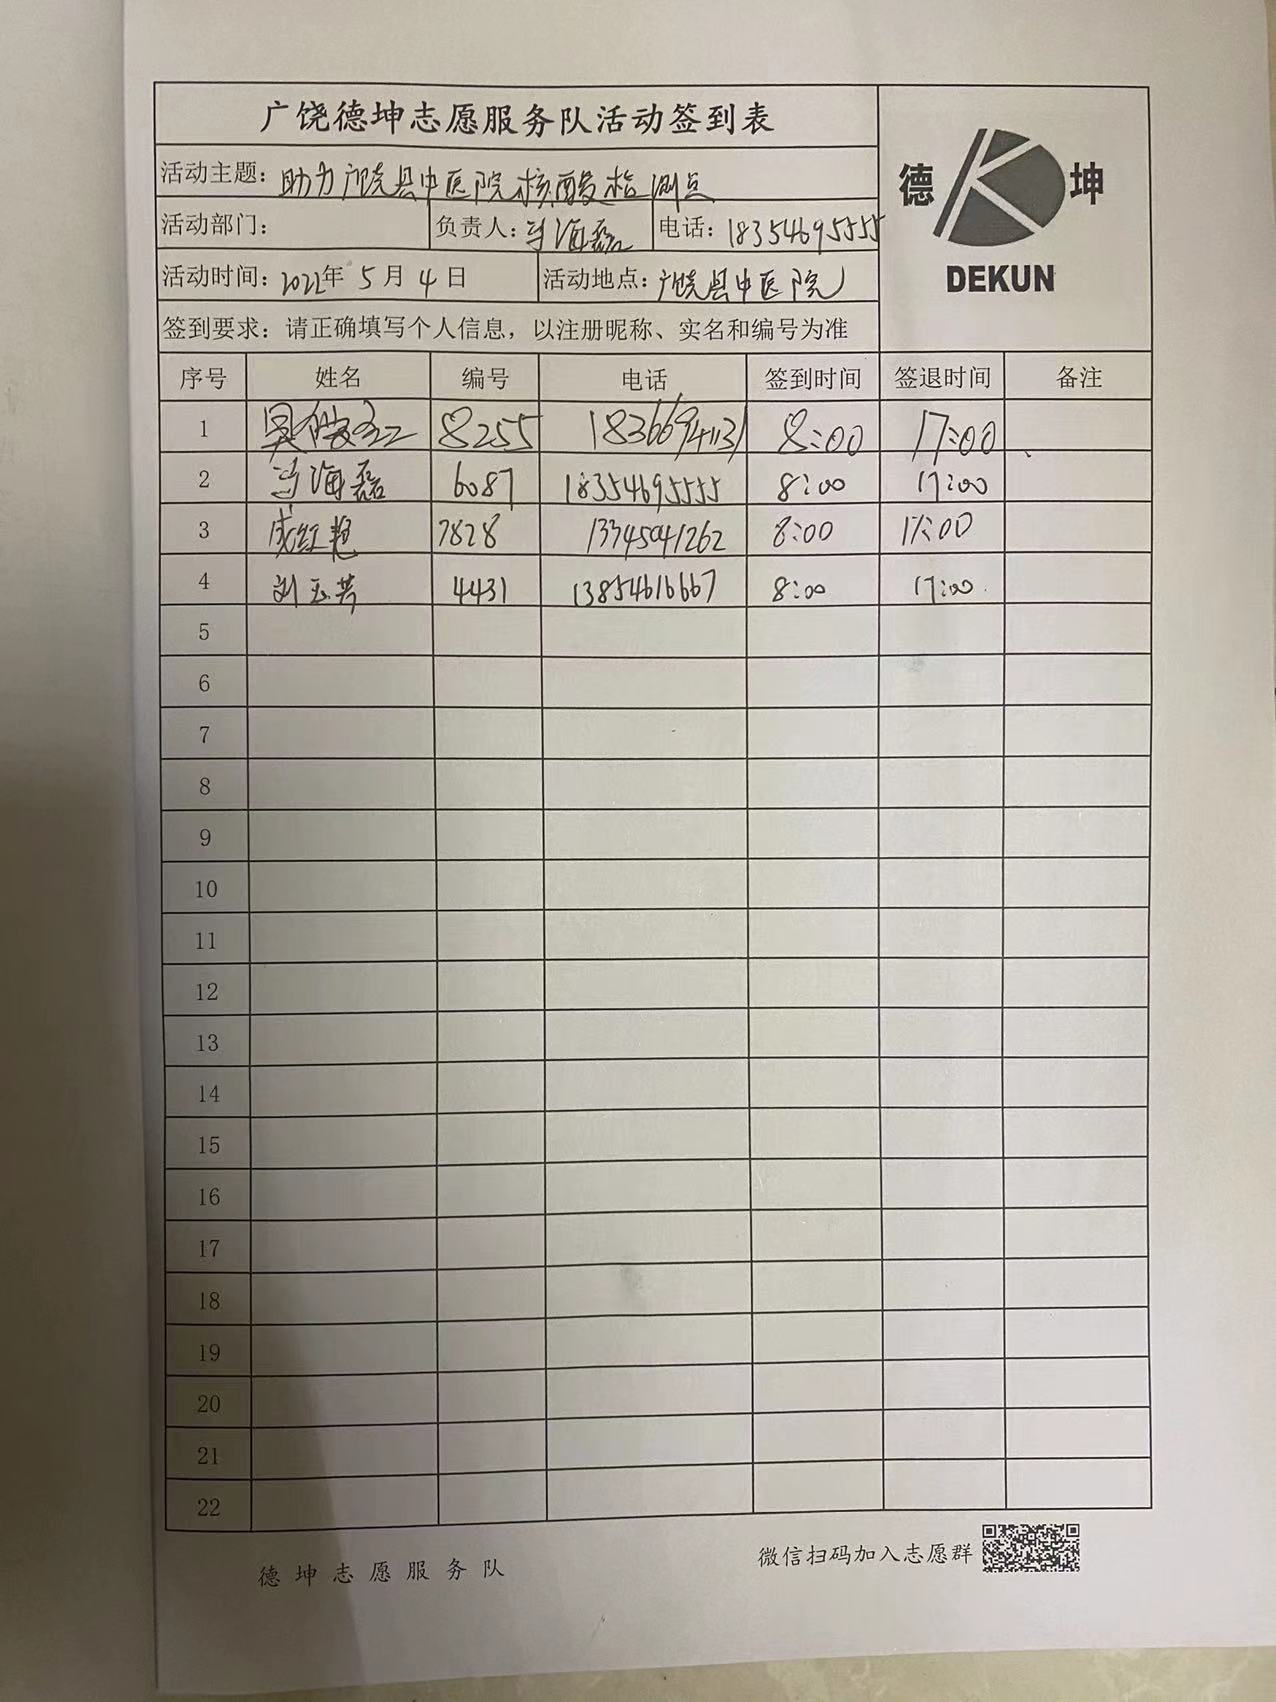 广饶德坤志愿服务队活动签到表
德 坤
DEKUN
活动主题：助力广饶县中医院核酸检测点
活动部门： 负责人：海磊 电话：18354695555
活动时间：2022年5月4日 活动地点：广饶县中医院
签到要求：请正确填写个人信息，以注册昵称、实名和编号为准
序号 姓名 编号 电话 签到时间 签退时间 备注
1 8255 18366941131 8:00 17:00
2 海磊 6087 18354695555 8:00 17:00
3 成红艳 7828 13745041262 8:00 17:00
4 刘玉芳 4431 13854616667 8:00 17:00
5
6
7
8
9
10
11
12
13
14
15
16
17
18
19
20
21
22
德坤志愿服务队 微信扫码加入志愿群